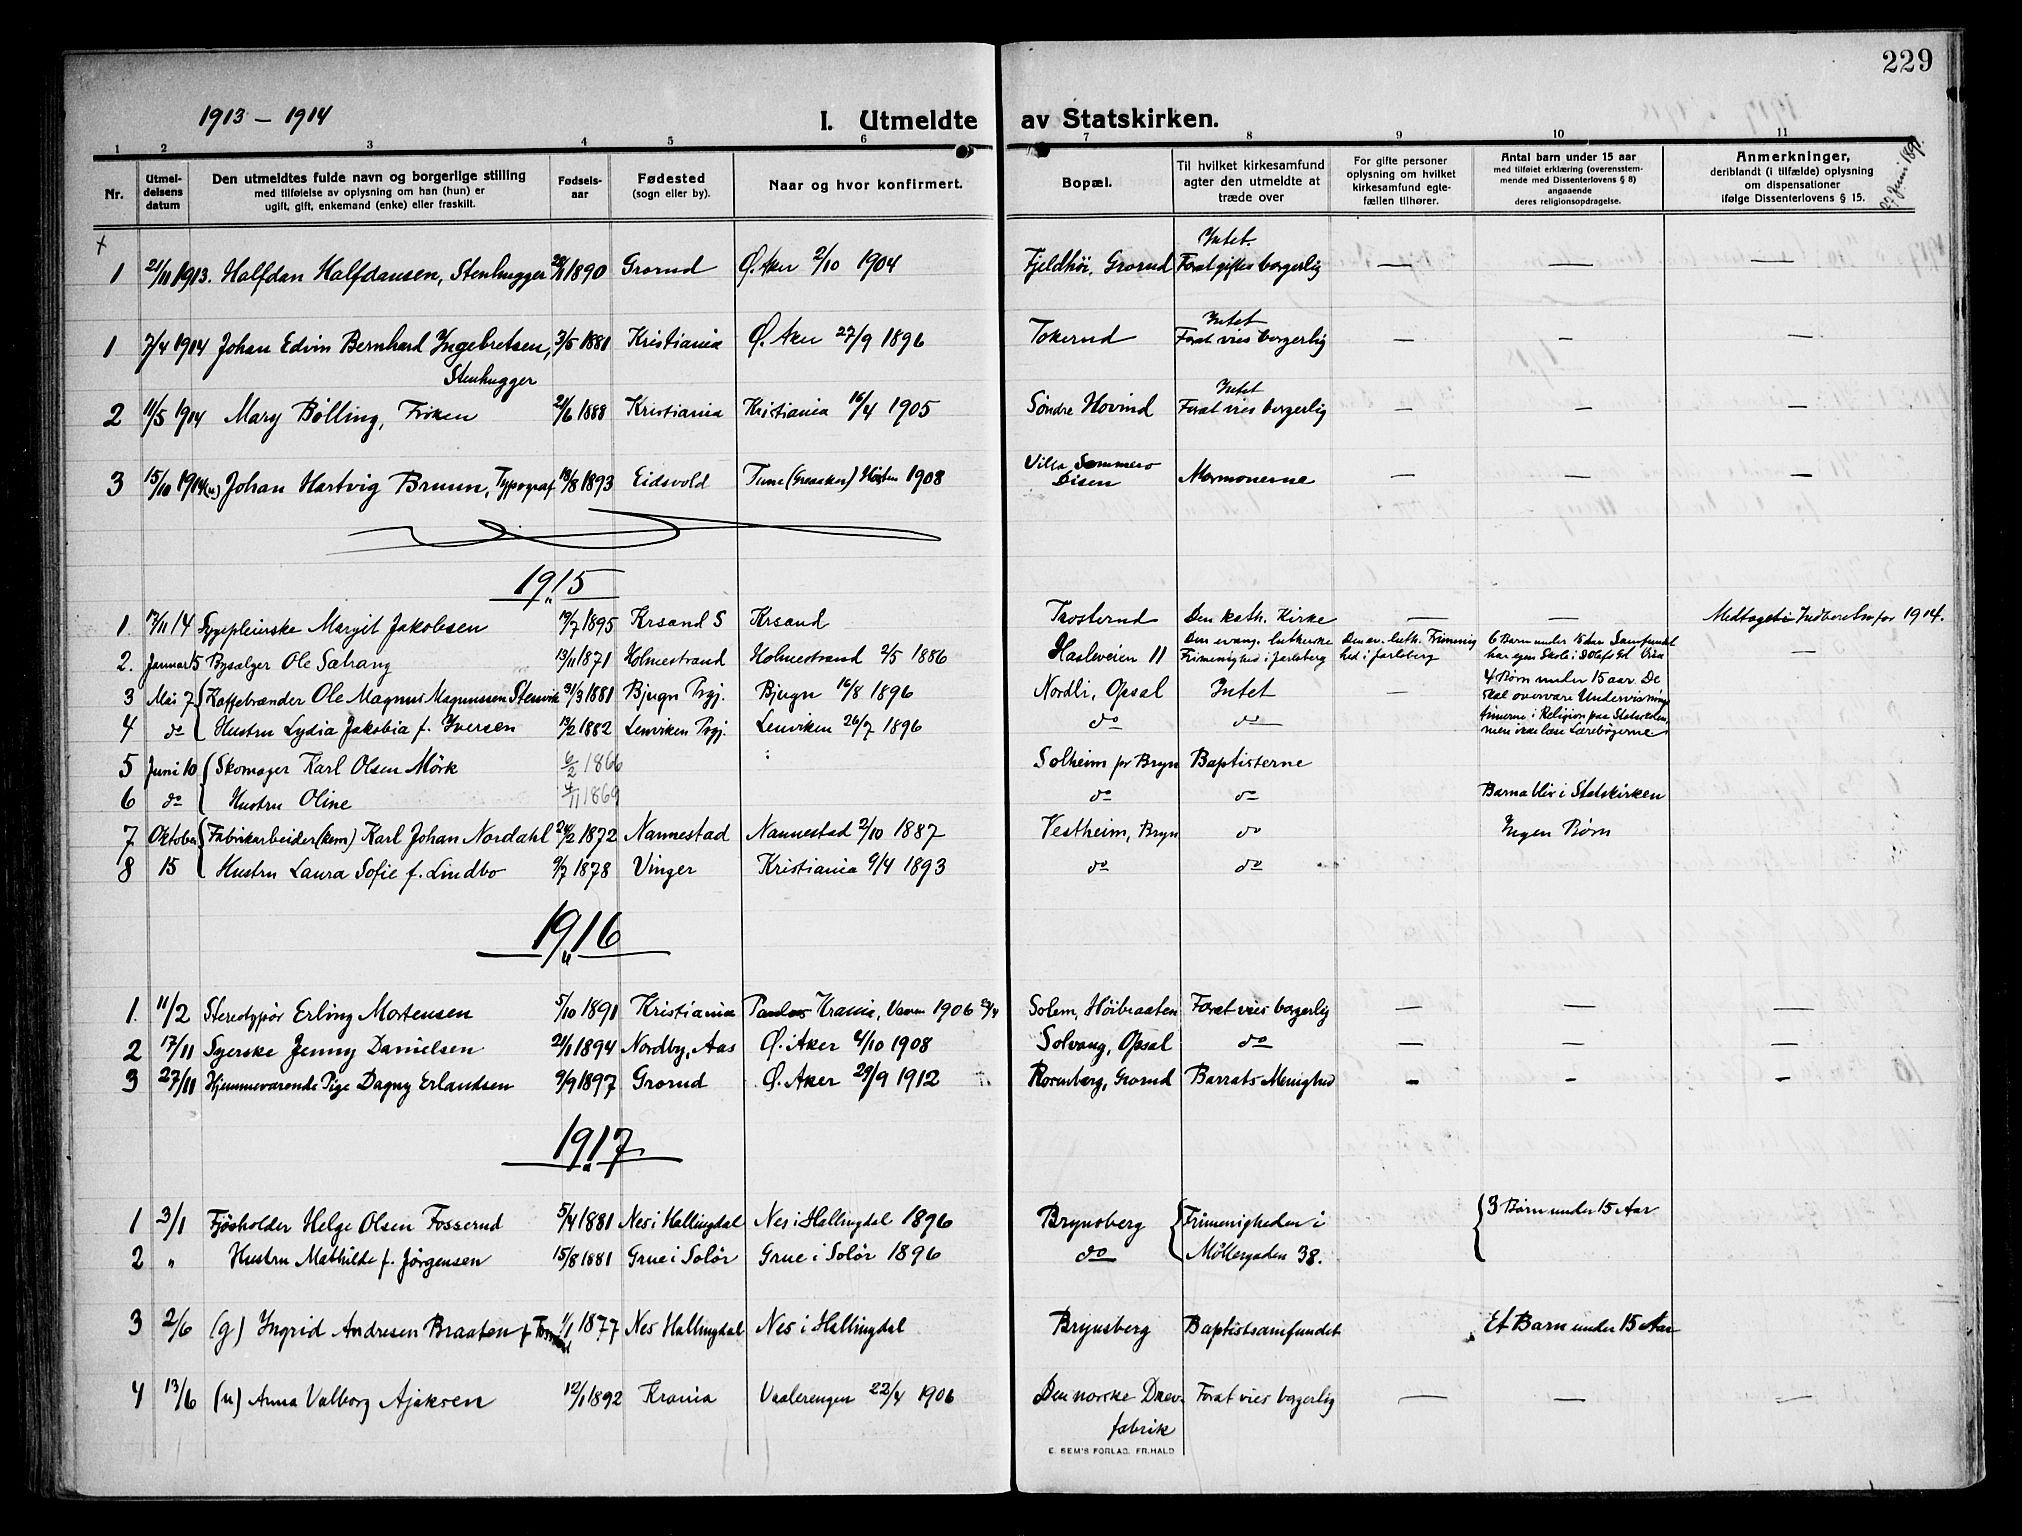 229
1913 – 1914
I. Utmeldte av Statskirken.
1 2 3 4 5 6 7 8 9 10 11
Nr. | Utmeldelsens datum | Den utmeldtes fulde navn og borgerlige stilling med tilføielse av oplysning om han (hun) er ugift, gift, enkemand (enke) eller fraskilt. | Fødselsaar | Fødested (sogn eller by). | Naar og hvor konfirmert. | Bopæl. | Til hvilket kirkesamfund agter den utmeldte at træde over | For gifte personer oplysning om hvilket kirkesamfund egtefællen tilhører. | Antal barn under 15 aar med tilføiet erklæring (overensstemmende med Dissenterlovens § 8) angaaende deres religionsopdragelse. | Anmerkninger, deriblandt (i tilfælde) oplysning om dispensationer ifølge Dissenterlovens § 15.
27 Juni 1891.
+
Intet.
1 21/11 1913. Halfdan Halfdansen, Stenhugger 1890 Grorud Ø. Aker 2/10 1904 Fjeldhöi, Grorud Forat giftes borgerlig — — —
Intet
1 7/4 1914 Johan Edvin Bernhard Ingebretsen, 3/5 1881 Kristiania Ø. Aker 27/9 1896 Tokerud Forat vies borgerlig — — —
Stenhugger
Intet
2 11/5 1914 Mary Bølling, Frøken 21/6 1888 Kristiania Kristiania 16/4 1905 Søndre Hovind Forat vies borgerlig — — —
Villa Sommero
3 15/10 1914 (u) Johan Hartvig Bruun, Typograf 13/8 1893 Eidsvold Tune (Greaaker) Høsten 1908 Disen Mormonerne — — —
1915
1. 17/11 14 Sygepleierske Margit Jakobsen 19/7 1895 Krsand S Krsand Trosterud Den kath. Kirke — — Medtaget i Indberetn. for 1914.
2. Januar 15 Bysælger Ole Sæhrang 13/11 1871 Holmestrand Holmestrand 2/5 1886 Hasleveien 11 Den evang. lutherske Frimenighed i Jarlsberg Den ev. luth. Frimenighed i Jarlsberg 6 Barn under 15 Aar Samfundet har egen Skole i —
3 Mai 7 Kaffebrænder Ole Magnus Magnussen Stenvik 31/3 1881 Bjugn Prgj. Bjugn 16/8 1896 Nordli, Opsal Intet — 4 Børn under 15 aar. De skal overvære Undervisnings
4 do Hustru Lydia Jakobia f. Iversen 13/2 1882 Lenviken Prgj. Lenviken 26/7 1896 do do timerne i Religion paa Statsskolen, men ikke læse Lærebøgerne.
5 Juni 10 Skomager Karl Olsen Mörk 6/2 1866 Solheim pr Bryn Baptisterne
6 do Hustru Oline 4/11 1869 do do Barna blir i Statskirken
7 Oktober Fabrikarbeider (kem) Karl Johan Nordahl 24/2 1872 Nannestad Nannestad 2/10 1887 Vestheim, Bryn do Ingen Børn
8 15 Hustru Laura Sofie f. Lindbo 9/7 1878 Vinger Kristiania 9/4 1893 do do
1916
1. 11/2 Stereotypør Erling Mortensen 5/10 1891 Kristiania Paulus Krania, Vaaren 1906 Solem, Höibraaten Forat vies borgerlig — — —
2 17/11 Syerske Jenny Danielsen 21/1 1894 Nordby, Aas Ø. Aker 4/10 1908 Solvang, Opsal do — — —
3 27/11 Hjemmeværende Pige Dagny Erlandsen 9/9 1897 Grorud Ø. Aker 29/9 1912 Rosenberg, Grorud Barrats Menighed — — —
1917
1 3/1 Fjösholder Helge Olsen Fosserud 5/4 1881 Nes i Hallingdal Nes i Hallingdal 1896 Brynsberg Frimenigheden i 3 Børn under 15 Aar
2 " Hustru Mathilde f. Jørgensen 15/8 1881 Grue i Solör Grue i Solör 1896 do Möllergaden 38.
3 2/6 (g) Ingrid Andresen Braaten 1/1 1877 Nes Hallingdal Nes i Hallingdal Brynsberg Baptistsamfundet Et Barn under 15 Aar
4 13/6 (u) Anna Valborg Ajaksen 12/1 1892 Krania Vaalerengen 22/4 1906 Den norske Drev- Forat vies borgerlig — — —
fabrik
E. SEM'S FORLAG. FR.HALD